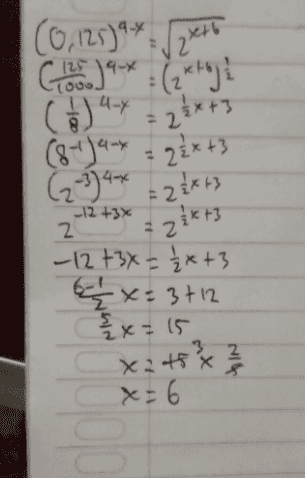 (0,125)^{4-x} = √(2^{x+6})
(125/1000)^{4-x} = (2^{x+6})^{1/2}
(1/8)^{4-x} = 2^{1/2 x+3}
(8^{-1})^{4-x} = 2^{1/2 x+3}
(2^{-3})^{4-x} = 2^{1/2 x+3}
2^{-12+3x} = 2^{1/2 x+3}
-12 + 3x = 1/2 x + 3
6-1/2 x = 3 + 12
5/2 x = 15
x = 15^3 x 2/5
x = 6